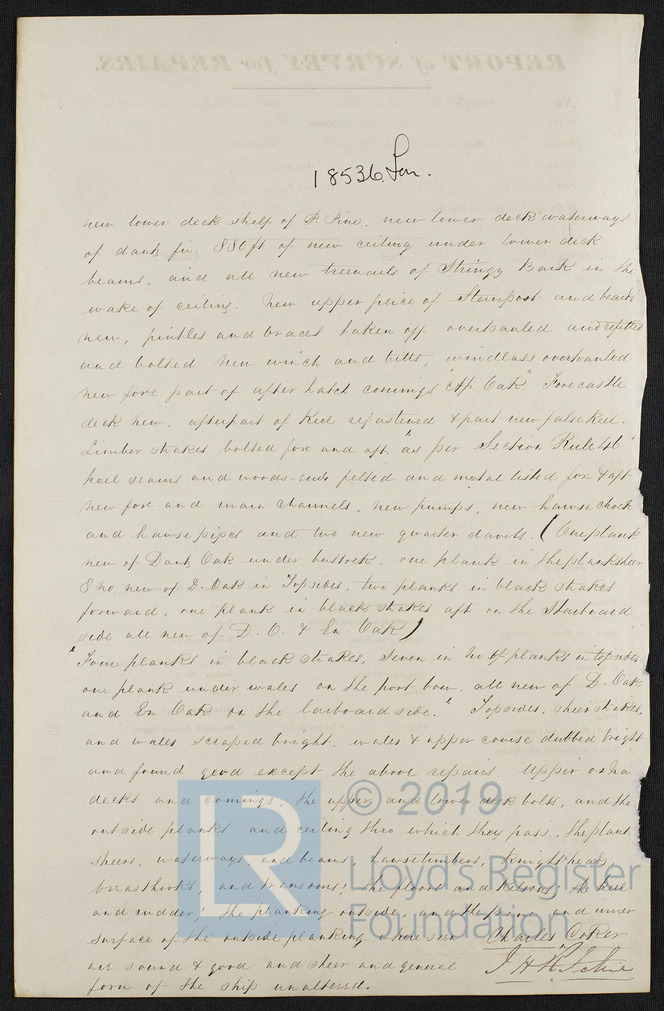 REPORT of SURVEY for REPAIRS.
18536 Lon.
new lower deck shelf of P. Pine, new lower deck waterways
of dantz fir. 880 ft of new ceiling under lower deck
beams, and all new treenails of Stringy Bark in the
wake of ceiling. New upper peice of Sternpost and beards
new, pintles and braces taken off overhauled and refitted
and bolted new winch and bitts, windlass overhauled
new fore part of after hatch comings "Af. Oak". Forecastle
deck new, afterpart of Keel refastened & part new false keel.
Limber strakes bolted fore and aft. "as per Section Rule 46"
keel seams and woods-ends felted and metal listed for & aft
new fore and main channels, new pumps, new hawse chock
and hawse pipes and two new quarter davits. (One plank
new of Dantz Oak under buttock, one plank in the planksheer
8 no new of D. Oak in Topsides, two planks in black strakes
forward, one plank in black strakes aft on the Starboard
side all new of D. O. & En. Oak)
"Four planks in black strakes, seven in planks in topsides
one plank under wales on the port bow, all new of D. Oak
and En Oak on the larboard side." Topsides, sheerstrakes,
and wales scraped bright, wales & upper course dubbed bright
and found good except the above repairs Upper
decks and comings, the upper and lower deck bolts, and the
outside planks and ceiling thro which they pass, the plank
sheers, waterways, and beams, hawsetimbers, knightheads,
breasthooks, and transoms, the floors and Kelsons, the keel
and rudder, the planking outside, and the and inner
surface of the outside planking where seen
are sound & good and sheer and general
form of the ship unaltered.
Charles Coker
J H Ritchie
© 2019
Lloyd's Register
Foundation
LR